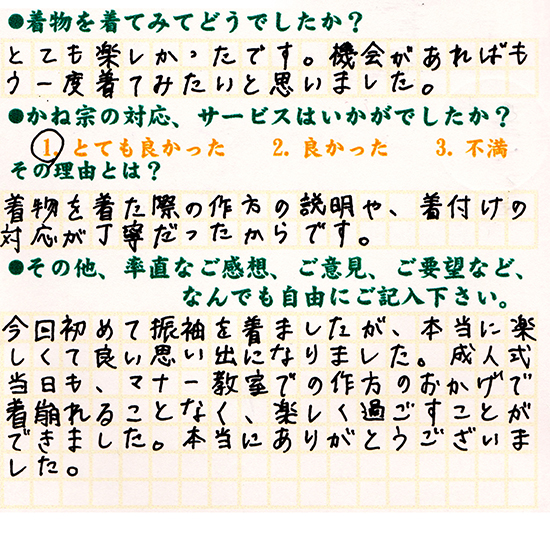 ●着物を着てみてどうでしたか？
とても楽しかったです。機会があればも
う一度着てみたいと思いました。
●かね宗の対応、サービスはいかがでしたか？
1. とても良かった 2.良かった 3. 不満
その理由とは？
着物を着た際の作方の説明や、着付けの
対応が丁寧だったからです。
●その他、率直なご感想、ご意見、ご要望など、
なんでも自由にご記入下さい。
今回初めて振袖を着ましたが、本当に楽
しくて良い思い出になりました。成人式
当日も、マナー教室での作方のおかげで
着崩れることなく、楽しく過ごすことが
できました。本当にありがとうございま
した。